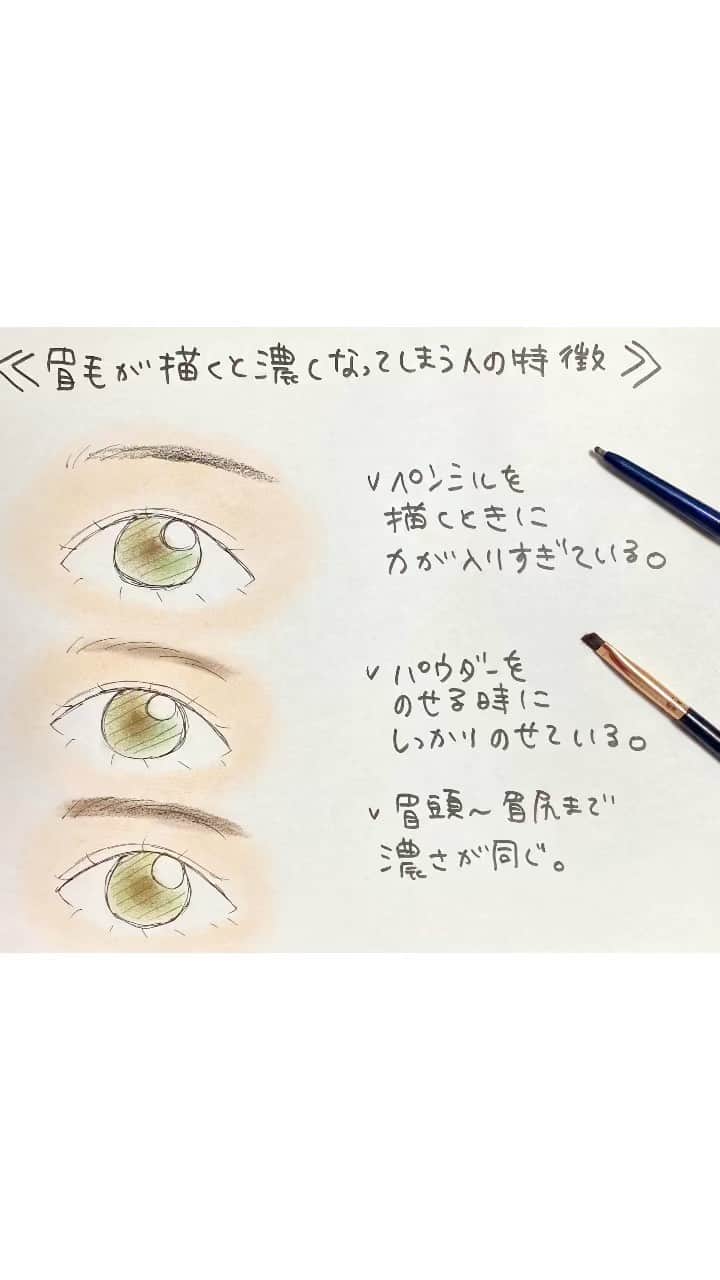 ≪眉毛が描くと濃くなってしまう人の特徴≫
✓ペンシルを
描くときに
力が入りすぎている。
✓パウダーを
のせる時に
しっかりのせている。
✓眉頭〜眉尻まで
濃さが同じ。